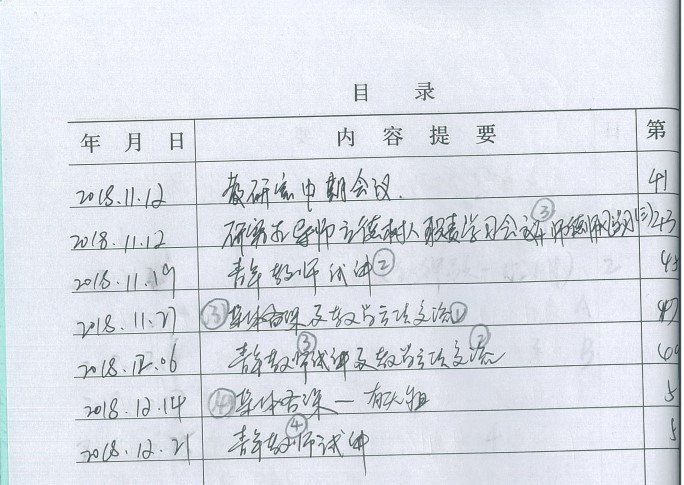 目 录
年 月 日 内 容 提 要 第
2018.11.12 教研室中期会议. 41
2018.11.12 研究生导师立德树人职责学习会议+师德师风学习(三) ③ 43
2018.11.19 青年教师试讲②
2018.11.27 ③集体备课及教学方法交流① 47
2018.12.06 青年教师试讲③及教学方法交流②
2018.12.14 ④集体备课一 5
2018.12.21 青年教师试讲④ 5